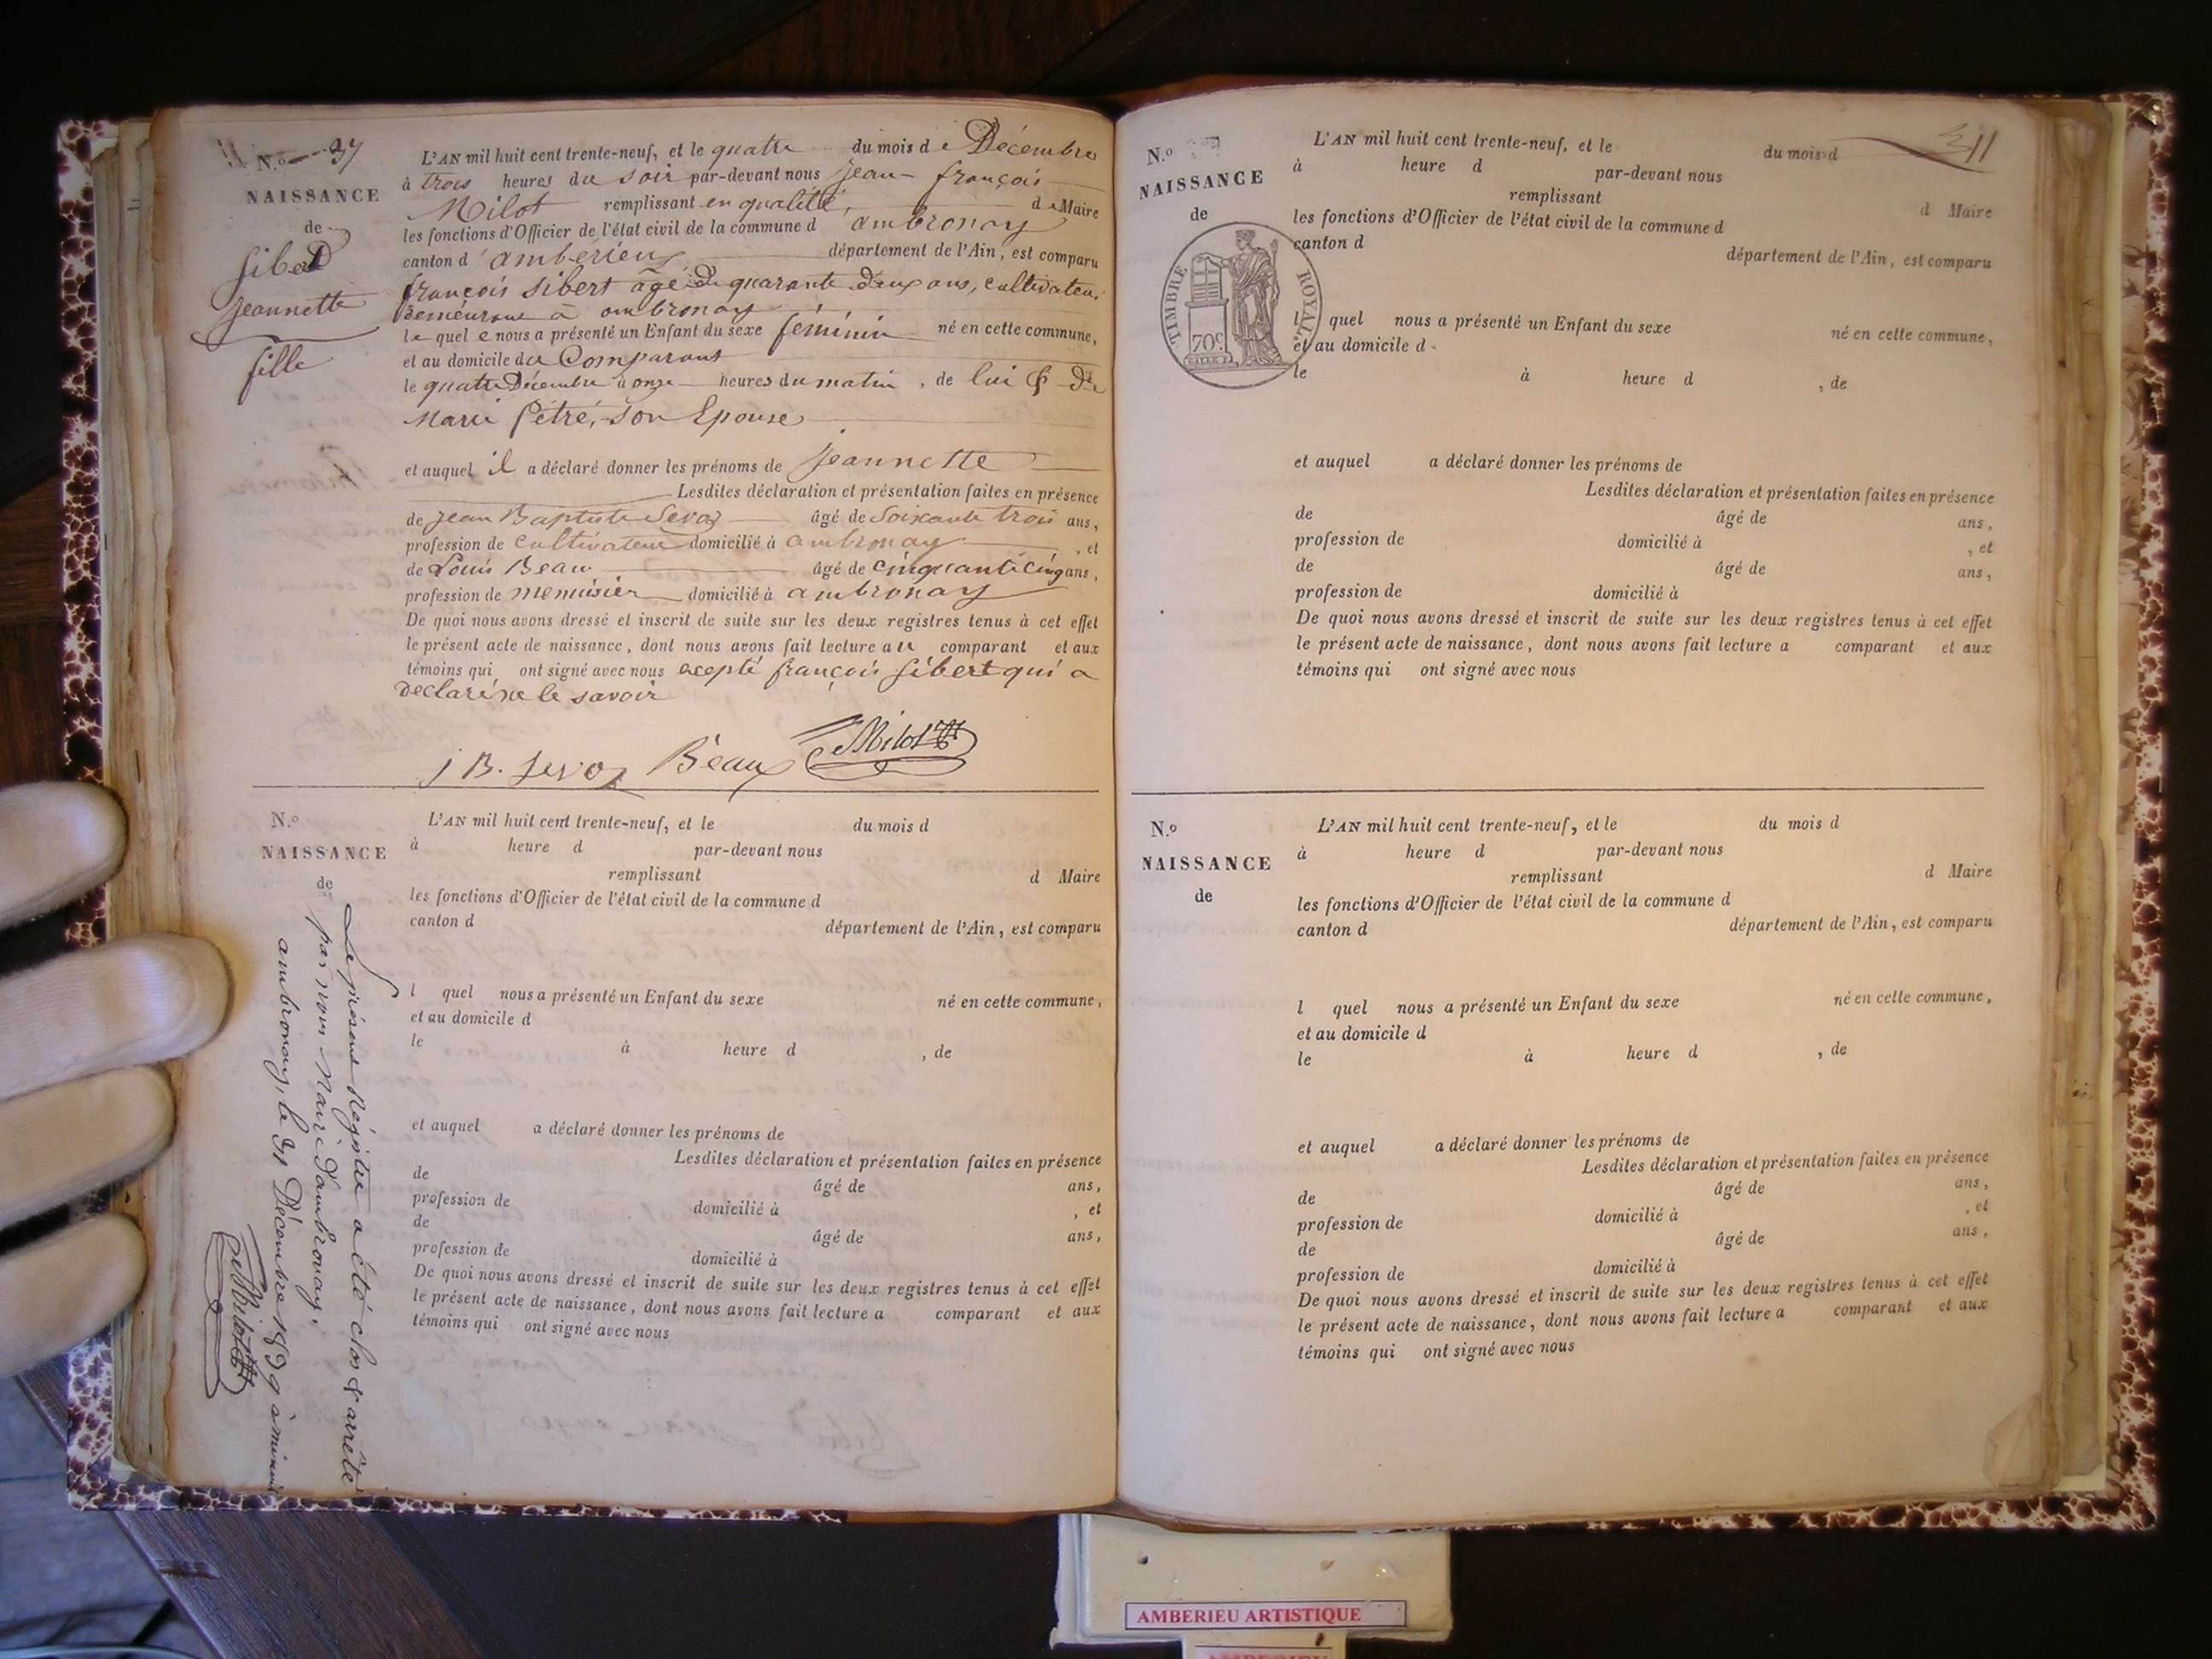 N.o 37
NAISSANCE
de
Sibert
Jeannette
fille
L'AN mil huit cent trente-neuf, et le quatre du mois de Décembre
à trois heures du soir par-devant nous Jean-françois
Milot remplissant en qualité, de Maire
les fonctions d'Officier de l'état civil de la commune d'ambronay
canton d'amberieux département de l'Ain, est comparu
françois Sibert âgé de quarante deux ans, cultivateur
demeurant à ambronay
lequel nous a présenté un Enfant du sexe féminin né en cette commune,
et au domicile du Comparant
le quatre Décembre à onze heures du matin, de lui & de
Marie Pétré, son Epouse
et auquel il a déclaré donner les prénoms de Jeannette
Lesdites déclaration et présentation faites en présence
de Jean Baptiste Sevoz âgé de Soixante trois ans,
profession de Cultivateur domicilié à ambronay, et
de Louis Beau âgé de cinquante cinq ans,
profession de menuisier domicilié à ambronay
De quoi nous avons dressé et inscrit de suite sur les deux registres tenus à cet effet
le présent acte de naissance, dont nous avons fait lecture au comparant et aux
témoins qui ont signé avec nous excepté françois Sibert qui a
declaré ne le savoir
J B. Sevoz Beau Milot
N.o
NAISSANCE
de
L'AN mil huit cent trente-neuf, et le du mois d
à heure d par-devant nous
remplissant d Maire
les fonctions d'Officier de l'état civil de la commune d
canton d département de l'Ain, est comparu
l quel nous a présenté un Enfant du sexe né en cette commune,
et au domicile d
le à heure d , de
et auquel a déclaré donner les prénoms de
Lesdites déclaration et présentation faites en présence
de âgé de ans,
profession de domicilié à , et
de âgé de ans,
profession de domicilié à
De quoi nous avons dressé et inscrit de suite sur les deux registres tenus à cet effet
le présent acte de naissance, dont nous avons fait lecture a comparant et aux
témoins qui ont signé avec nous
Le présent Régistre a été clos & arrêté
par nous Maire d'ambronay,
ambronay, le 31 Décembre 1839 à minuit
Milot
N.o
NAISSANCE
de
311
TIMBRE ROYAL
70c
L'AN mil huit cent trente-neuf, et le du mois d
à heure d par-devant nous
remplissant d Maire
les fonctions d'Officier de l'état civil de la commune d
canton d département de l'Ain, est comparu
l quel nous a présenté un Enfant du sexe né en cette commune,
et au domicile d
le à heure d , de
et auquel a déclaré donner les prénoms de
Lesdites déclaration et présentation faites en présence
de âgé de ans,
profession de domicilié à , et
de âgé de ans,
profession de domicilié à
De quoi nous avons dressé et inscrit de suite sur les deux registres tenus à cet effet
le présent acte de naissance, dont nous avons fait lecture a comparant et aux
témoins qui ont signé avec nous
N.o
NAISSANCE
de
L'AN mil huit cent trente-neuf, et le du mois d
à heure d par-devant nous
remplissant d Maire
les fonctions d'Officier de l'état civil de la commune d
canton d département de l'Ain, est comparu
l quel nous a présenté un Enfant du sexe né en cette commune,
et au domicile d
le à heure d , de
et auquel a déclaré donner les prénoms de
Lesdites déclaration et présentation faites en présence
de âgé de ans,
profession de domicilié à , et
de âgé de ans,
profession de domicilié à
De quoi nous avons dressé et inscrit de suite sur les deux registres tenus à cet effet
le présent acte de naissance, dont nous avons fait lecture a comparant et aux
témoins qui ont signé avec nous
AMBERIEU ARTISTIQUE